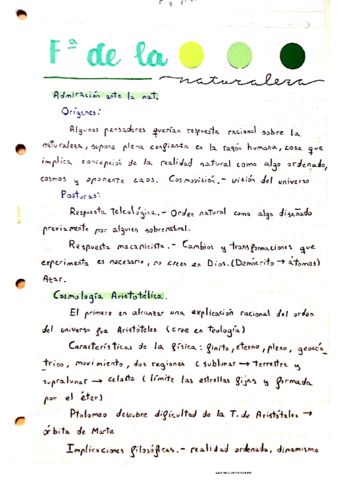 Fª de la
naturaleza
Admiración ante la nat.
Orígenes:
Algunos pensadores querían respuesta racional sobre la
naturaleza, supone plena confianza en la razón humana, cosa que
implica concepción de la realidad natural como algo ordenado,
cosmos y oponente caos. Cosmovisión.- visión del universo
Posturas:
Respuesta teleológica.- Orden natural como algo diseñado
previamente por alguien sobrenatural.
Respuesta mecanicista.- Cambios y transformaciones que
experimenta es necesario, no creen en Dios. (Demócrito → átomos)
Azar.
Cosmología Aristotélica.
El primero en alcanzar una explicación racional del orden
del universo fue Aristóteles (cree en teología)
Características de la física: finito, eterno, pleno, geocén
trico, movimiento, dos regiones (sublunar → terrestre y
supralunar → celeste (límite las estrellas fijas y formada
por el éter)
Ptolomeo descubre dificultad de la T. de Aristóteles →
órbita de Marte
Implicaciones filosóficas.- realidad ordenada, dinamismo